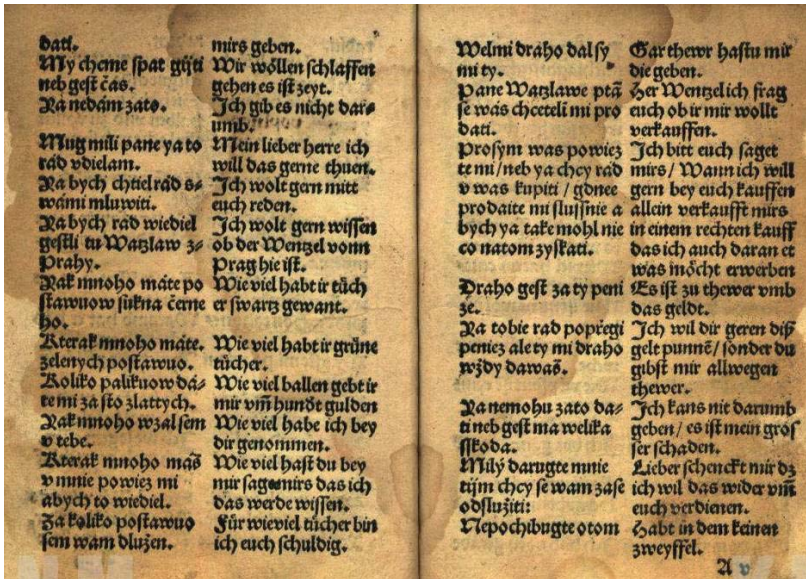 dati.
My chcme spat gijti
neb gest čas.
Ya nedám zato.
Mug mili pane ya to
rád vdielam.
Ya bych chtiel rád s-
wámi mluwiti.
Ya bych rad wiediel
gestli tu Waczlaw z-
Prahy.
Yak mnoho máte po
stawuow sukna černe
ho.
Kterak mnoho máte.
zelenych postawuo.
Koliko palikuow dá-
te mi za sto zlattych.
Yak mnoho wzal sem
v tebe.
Kterak mnoho máš
v mnie powiez mi
abych to wiediel.
Za koliko postawuo
sem wam dlužen.
mirs geben.
Wir wöllen schlaffen
gehen es ist zeyt.
Ich gib es nicht dar-
umb.
Mein lieber herre ich
will das gerne thuen.
Ich wolt gern mitt
euch reden.
Ich wolt gern wissen
ob der Wentzel vonn
Prag hie ist.
Wie viel habt ir tüch
er swartz gewant.
Wie viel habt ir grüne
tücher.
Wie viel ballen gebt ir
mir vm̄ hundt gulden
Wie viel habe ich bey
dir genommen.
Wie viel hast du bey
mir sage mirs das ich
das werde wissen.
Für wieviel tücher bin
ich euch schuldig.
Welmi draho dal sy
mi ty.
Pane Watzlawe ptā
se was chceteli mi pro
dati.
Prosym was powiez
te mi/neb ya chcy rad
v was kupiti / gdnee
prodaite mi slussnie a
bych ya take mohl nie
co natom zyskati.
Draho gest za ty peni
ze.
Ya tobie rad popřegi
peniez ale ty mi draho
wždy dawaš.
Ya nemohu zato da-
ti neb gest ma welika
sskoda.
Milý darugte mnie
tijm chcy se wam zase
odslužiti:
Nepochibugte o tom
Gar thewr hastu mir
die geben.
Her Wentzel ich frag
euch ob ir mir wollt
verkauffen.
Ich bitt euch saget
mirs/ Wann ich will
gern bey euch kauffen
allein verkaufft mirs
in einem rechten kauff
das ich auch daran et
was möcht erwerben
Es ist zu thewer vmb
das geldt.
Ich wil dir geren diß
gelt punnē/ sonder du
gibst mir allwegen
thewer.
Ich kans nit darumb
geben/ es ist mein gros
ser schaden.
Lieber schenckt mir dz
ich wil das wider vm̄
euch verdienen.
Habt in dem keinen
zweyffel.
A v